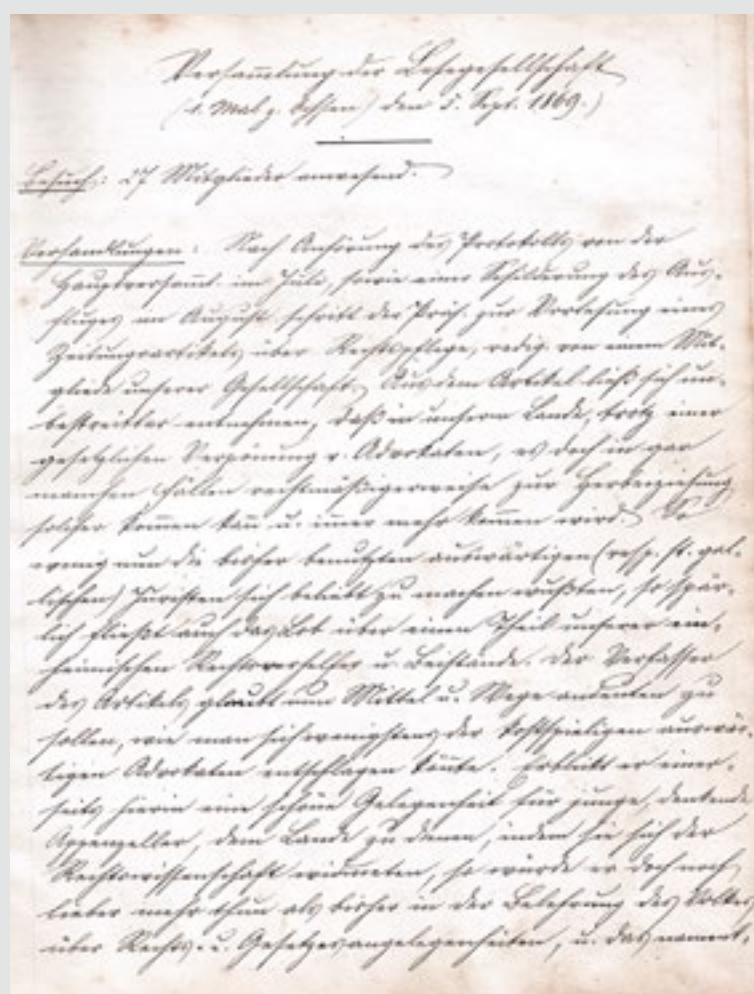 Versammlung der Lesegesellschaft
(1. Mal z. Ochsen) den 5. Sept. 1869.)
Besuch: 27 Mitglieder anwesend.
Verhandlungen: Nach Anhörung des Protokolls von der
Hauptversamml. im Juli, sowie einer Schilderung des Aus-
fluges im August, schritt der Präs. zur Vorlesung eines
Zeitungsartikels über Rechtspflege, redig. von einem Mit-
gliede unserer Gesellschaft. Aus dem Artikel ließ sich un-
bestreitbar entnehmen, daß in unserm Lande, trotz einer
gesetzlichen Verpönung v. Advokaten, es doch in gar
manchen Fällen rechtmäßigerweise zur Herbeiziehung
solcher kommen kan u. imer mehr kommen wird. So
wenig nun die bisher benutzten auswärtigen (resp. st. gal-
lischen) Juristen sich beliebt zu machen wußten, so spär-
lich fließt auch das Lob über einen Theil unserer ein-
heimischen Rechtsverhelfer u. Beistände. Der Verfasser
des Artikels glaubt nun Mittel u. Wege andeuten zu
sollen, wie man sich wenigstens der kostspieligen auswär-
tigen Advokaten entschlagen könte. Erblickt er einer-
seits hierin eine schöne Gelegenheit für junge, denkende
Appenzeller, dem Lande zu dienen, indem sie sich der
Rechtswissenschaft widmeten, so würde er doch noch
lieber mehr thun als bisher in der Belehrung des Volkes
über Rechts- u. Gesetzesangelegenheiten, u. das nament-